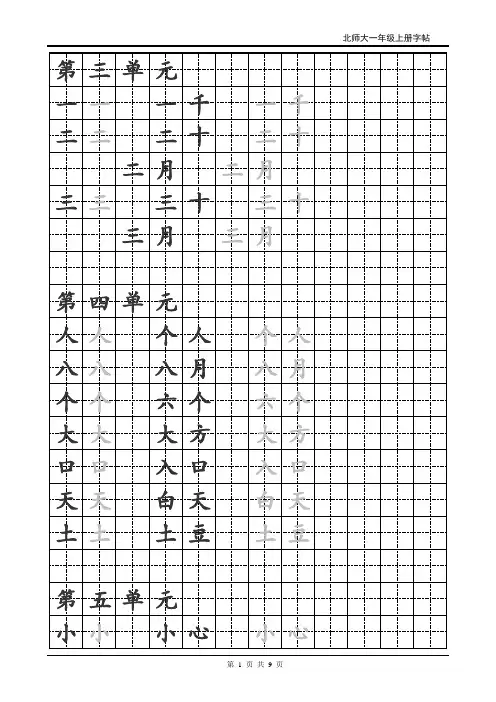 北师大一年级上册字帖
第三单元
一 一 一千 一千
二 二 二十 二十
二月 二月
三 三 三十 三十
三月 三月
第四单元
人 人 个人 个人
八 八 八月 八月
个 个 六个 六个
大 大 大方 大方
口 口 入口 入口
天 天 白天 白天
土 土 土豆 土豆
第五单元
小 小 小心 小心
第 1 页 共 9 页